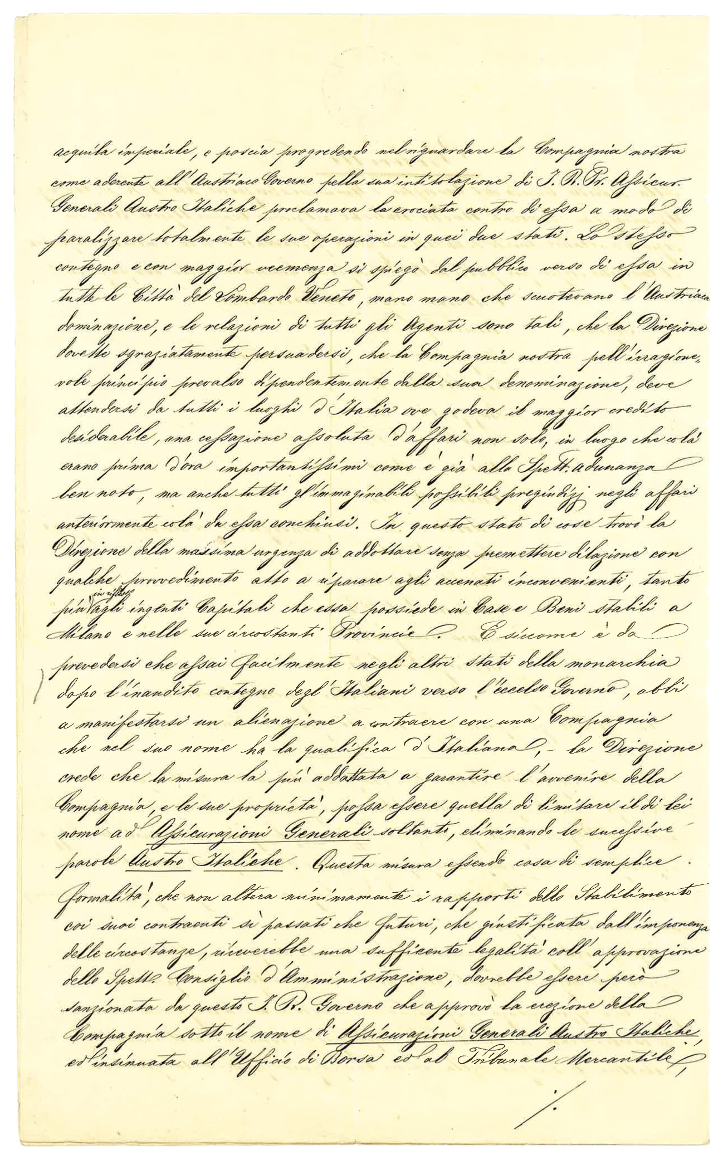 acquila imperiale, e poscia progredendo nel riguardare la Compagnia nostra
come aderente all'Austriaco Governo pella sua intitolazione di I. R. Pr. Assicur.
Generali Austro Italiche proclamava la crociata contro di essa a modo di
paralizzare totalmente le sue operazioni in quei due stati. Lo stesso
contegno e con maggior veemenza si spiegò dal pubblico verso di essa in
tutte le Città del Lombardo Veneto, mano mano che scuotevano l'Austriaca
dominazione, e le relazioni di tutti gli Agenti sono tali, che la Direzione
dovette sgraziatamente persuadersi, che la Compagnia nostra pell'irragione,
vole principio prevalso dipendentemente dalla sua denominazione, deve
attendersi da tutti i luoghi d'Italia ove godeva il maggior credito
desiderabile, una cessazione assoluta d'affari non solo, in luogo che colà
erano prima d'ora importantissimi come è già allo Spett. adunanza
ben noto, ma anche tutti gl'immaginabili possibili pregiudizj negli affari
anteriormente colà da essa conchiusi. In questo stato di cose trovò la
Direzione della massima urgenza di addottare senza premettere dilazione con
qualche provvedimento atto a riparare agli accenati inconvenienti, tanto
più in riflesso agli ingenti Capitali che essa possiede in Case e Beni stabili a
Milano e nelle sue circostanti Provincie. E siccome è da
prevedersi che assai facilmente negli altri stati della monarchia
dopo l'inaudito contegno degl'Italiani verso l'eccelso Governo, abbi
a manifestarsi un alienazione a contraere con una Compagnia
che nel suo nome ha la qualifica d'Italiana, - la Direzione
crede che la misura la più addattata a garantire l'avvenire della
Compagnia, e le sue proprietà, possa essere quella di limitare il di lei
nome ad Assicurazioni Generali soltanti, eliminando le sucessive
parole Austro Italiche. Questa misura essendo cosa di semplice
formalità, che non altera minimamente i rapporti dello Stabilimento
coi suoi contraenti sì passati che futuri, che giustificata dall'imponenza
delle circostanze, riceverebbe una sufficente legalità coll'approvazione
dello Spett. Consiglio d'Amministrazione, dovrebbe essere però
sanzionata da questo I. R. Governo che approvò la erezione della
Compagnia sotto il nome di Assicurazioni Generali Austro Italiche,
ed insinuata all'Ufficio di Borsa ed al Tribunale Mercantile,
./.